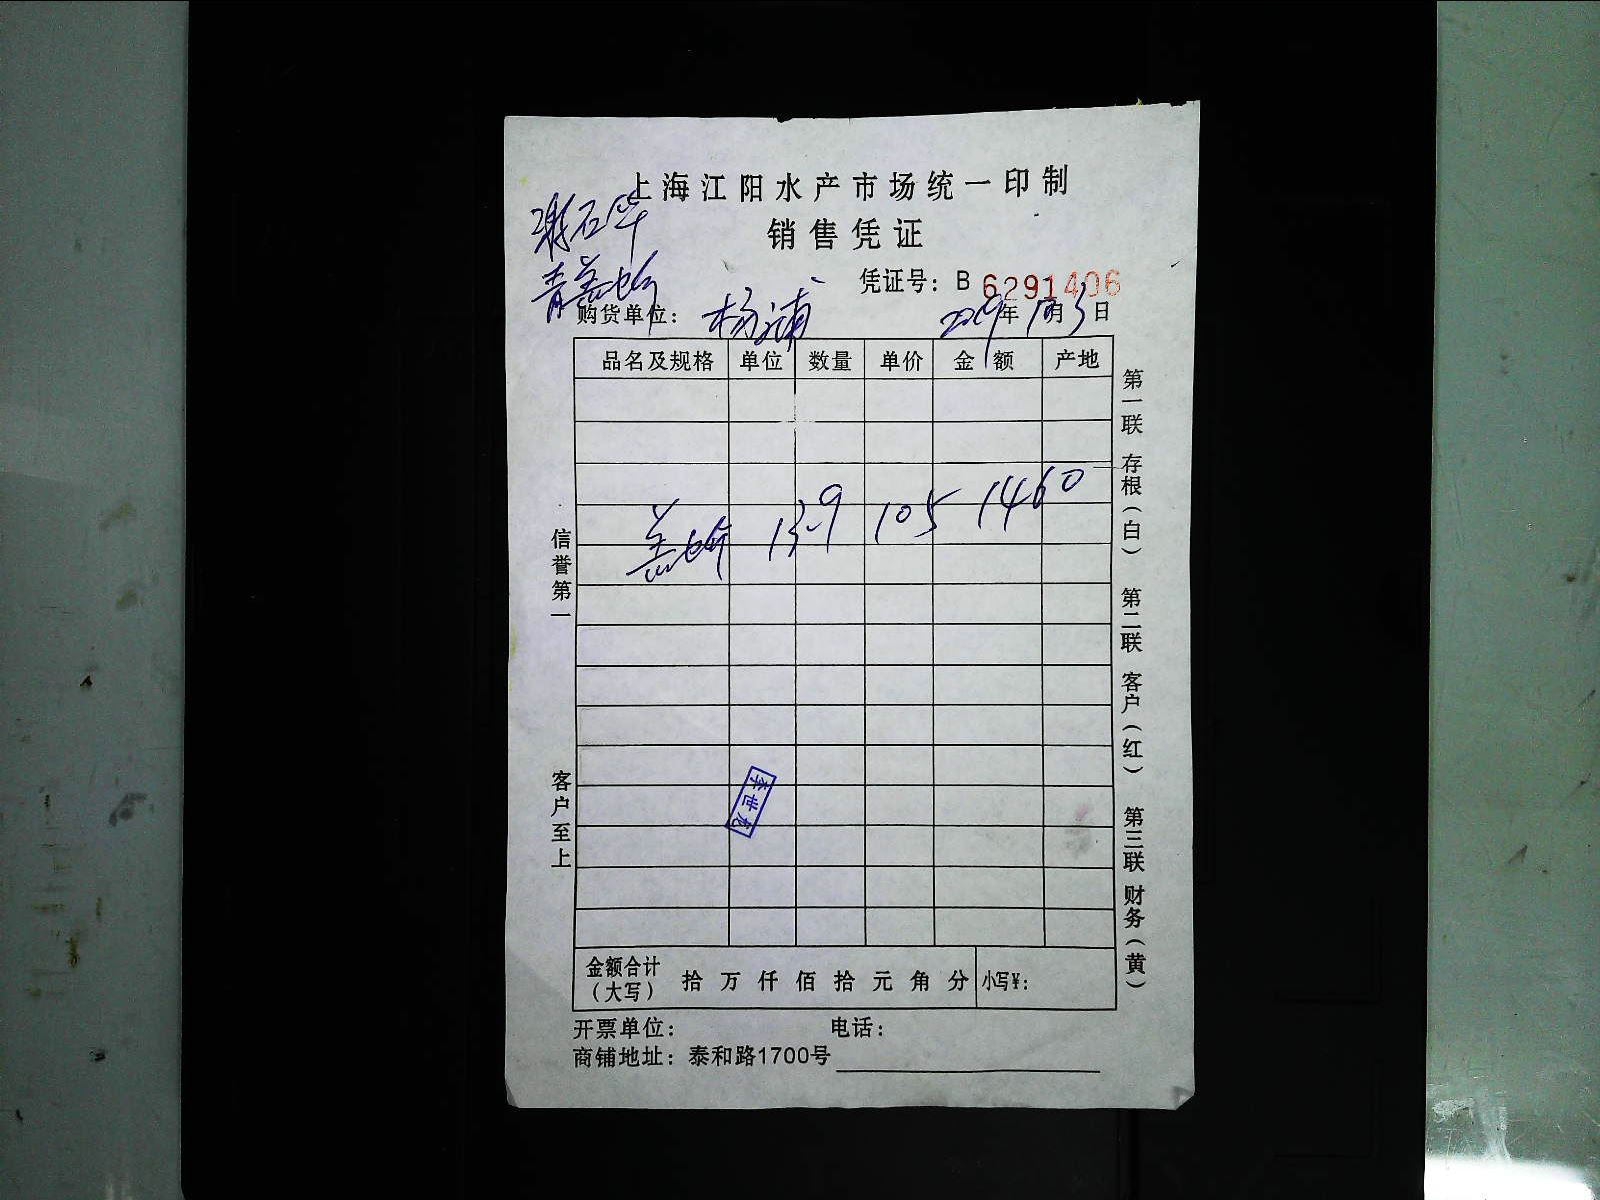 上海江阳水产市场统一印制
销售凭证
凭证号：B 6291406
购货单位：杨浦 2019年 月3日
品名及规格 单位 数量 单价 金额 产地
13.9 105 1460
李世龙
金额合计（大写） 拾 万 仟 佰 拾 元 角 分 小写¥：
开票单位： 电话：
商铺地址：泰和路1700号
信誉第一 客户至上
第一联 存根（白） 第二联 客户（红） 第三联 财务（黄）